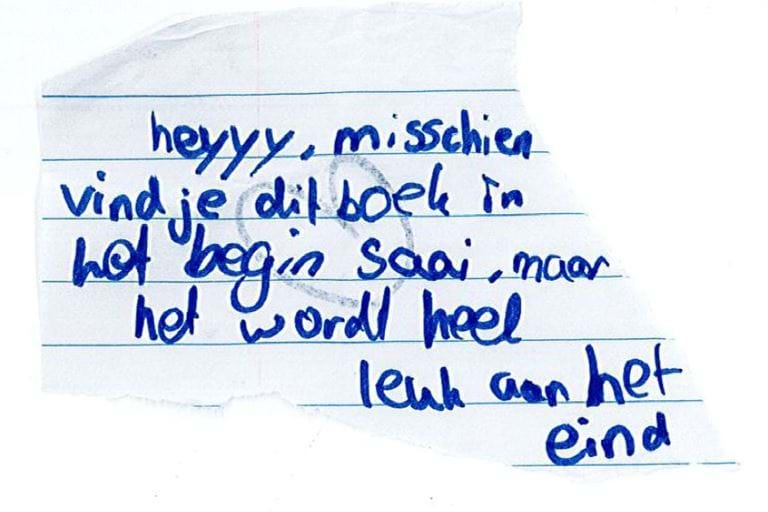 heyyy, misschien
vind je dit boek in
het begin saai, maar
het wordt heel
leuk aan het
eind